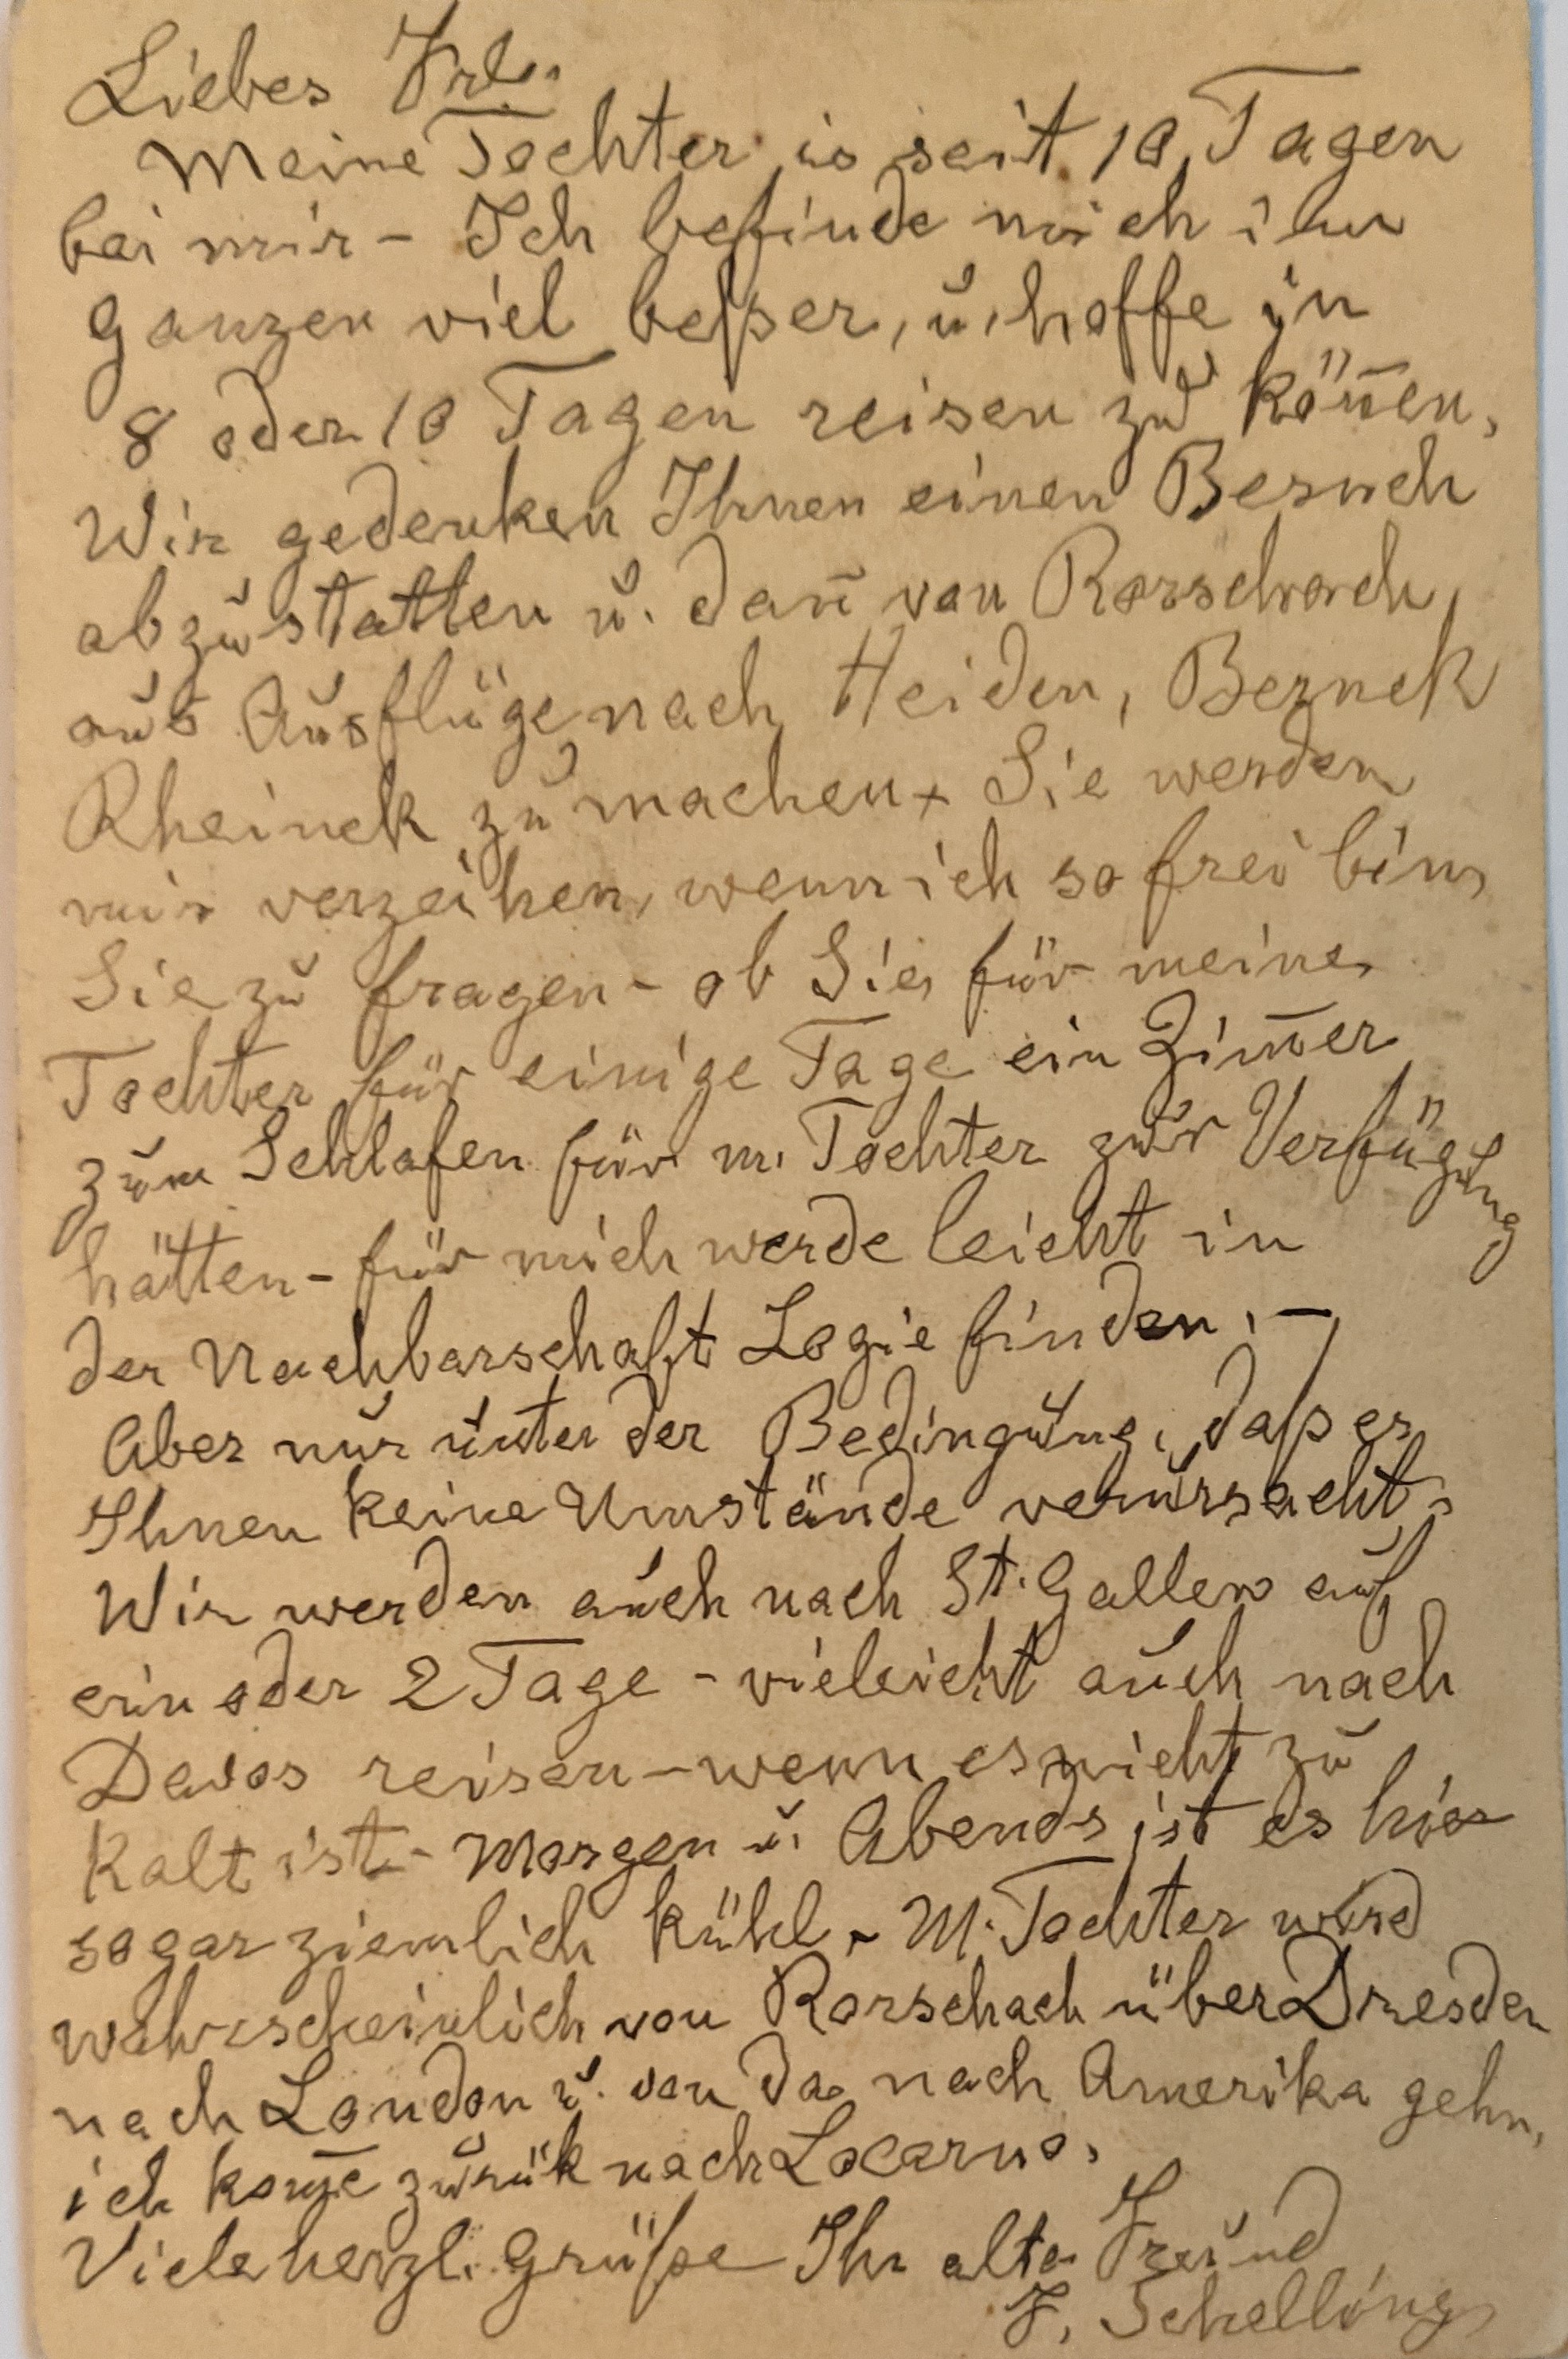 Liebes Frl.
Meine Tochter is seit 10 Tagen
bei mir - Ich befinde mich im
ganzen viel beßer, u. hoffe in
8 oder 10 Tagen reisen zu kön̄en,
Wir gedenken Ihnen einen Besuch
abzustatten u. dan̄ von Rorschach
aus Ausflüge nach Heiden, Berneck
Rheineck zu machen. Sie werden
mir verzeihen, wenn ich so frei bin,
Sie zu fragen - ob Sie für meine
Tochter für einige Tage ein Zim̄er
zum Schlafen für m. Tochter zur Verfügung
hätten - für mich werde leicht in
der Nachbarschaft Logie finden. -
Aber nur unter der Bedingung, daß es
Ihnen keine Umstände verursacht.
Wir werden auch nach St. Gallen auf
ein oder 2 Tage - vieleicht auch nach
Davos reisen - wenn es nicht zu
kalt ist - Morgen u. Abends ist es hier
sogar ziemlich kühl - M. Tochter wird
wahrscheinlich von Rorschach über Dresden
nach London u. von da nach Amerika gehn,
ich kom̄e zurük nach Locarno.
Viele herzl. Grüße Ihr alter Freund
F. Schelling